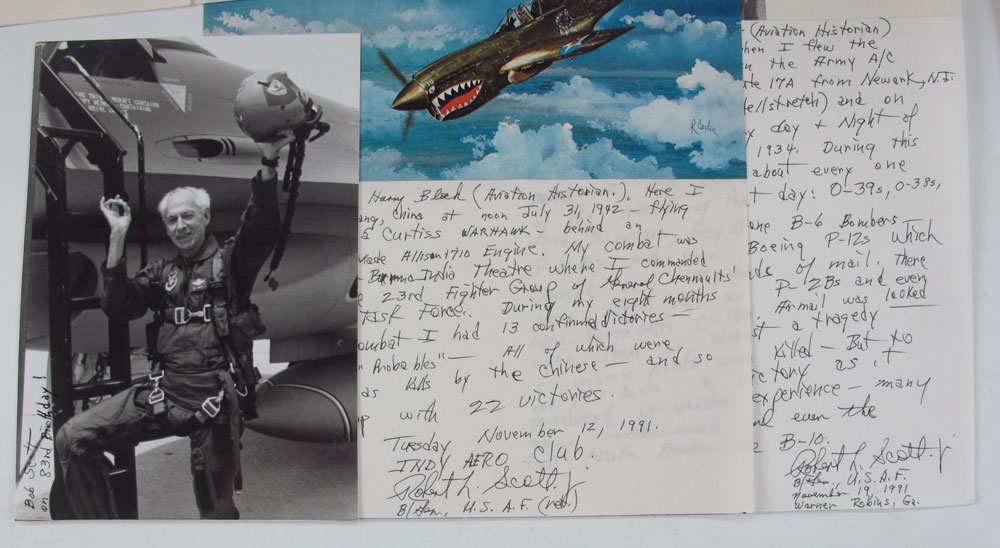 Bob Scott
on 83rd Birthday!
R. Cavlin
Harry Bleek (Aviation Historian.). Here I
ang, China at noon July 31, 1942 — flying
a Curtiss WARHAWK — behind an
made Allison 1710 Engine. My combat was
Burma India Theatre where I commanded
23rd Fighter Group of General Chennaults'
Task Force. During my eight months
ombat I had 13 confirmed victories —
Probables" — All of which were
as kills by the Chinese — and so
up with 22 victories.
Tuesday November 12, 1991.
INDY AERO Club.
Robert L. Scott Jr
B/Gen., U.S.A.F (ret.)
(Aviation Historian)
hen I flew the
n the Army A/C
te 17A from Newark, N.J.
ell stretch) and on
y day + Night of
1934. During this
about every one
t day: O-39s, O-38s,
ane B-6 Bombers
Boeing P-12s which
ds of mail. There
P-12Bs and even
Airmail was looked
st a tragedy —
Killed — But to
ctory as it
experience — many
nd even the
B-10.
Robert L. Scott Jr
B/Gen, U.S.A.F.
November 19, 1991
Warner Robins, Ga.